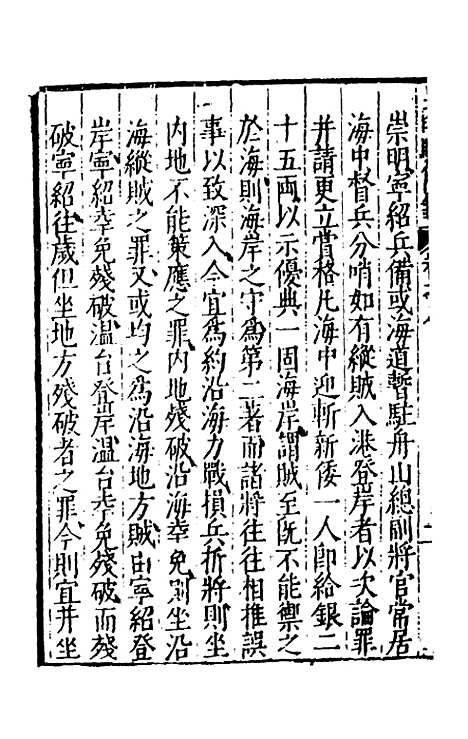 崇明寧紹兵備或海道暫駐舟山總副將官常居
海中督兵分哨如有縱賊入港登岸者以次論罪
并請更立賞格凡海中迎斬新倭一人卽給銀二
十五兩以示優典一固海岸謂賊至旣不能禦之
於海則海岸之守爲第二著而諸將往往相推誤
事以致深入今宜爲約沿海力戰損兵折將則坐
内地不能策應之罪内地殘破沿海幸免則坐沿
海縱賊之罪又或均之爲沿海地方賊由寧紹登
岸寧紹幸免殘破溫台登岸溫台幸免殘破而殘
破寧紹往歲但坐地方殘破者之罪今則宜并坐